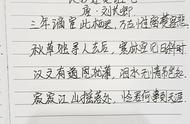 唐·刘长卿
三年谪宦此栖迟,万古惟留楚客悲
秋草独寻人去后,寒林空见日斜时
汉文有道恩犹薄,湘水无情吊岂知
寂寂江山摇落处,怜君何事到天涯